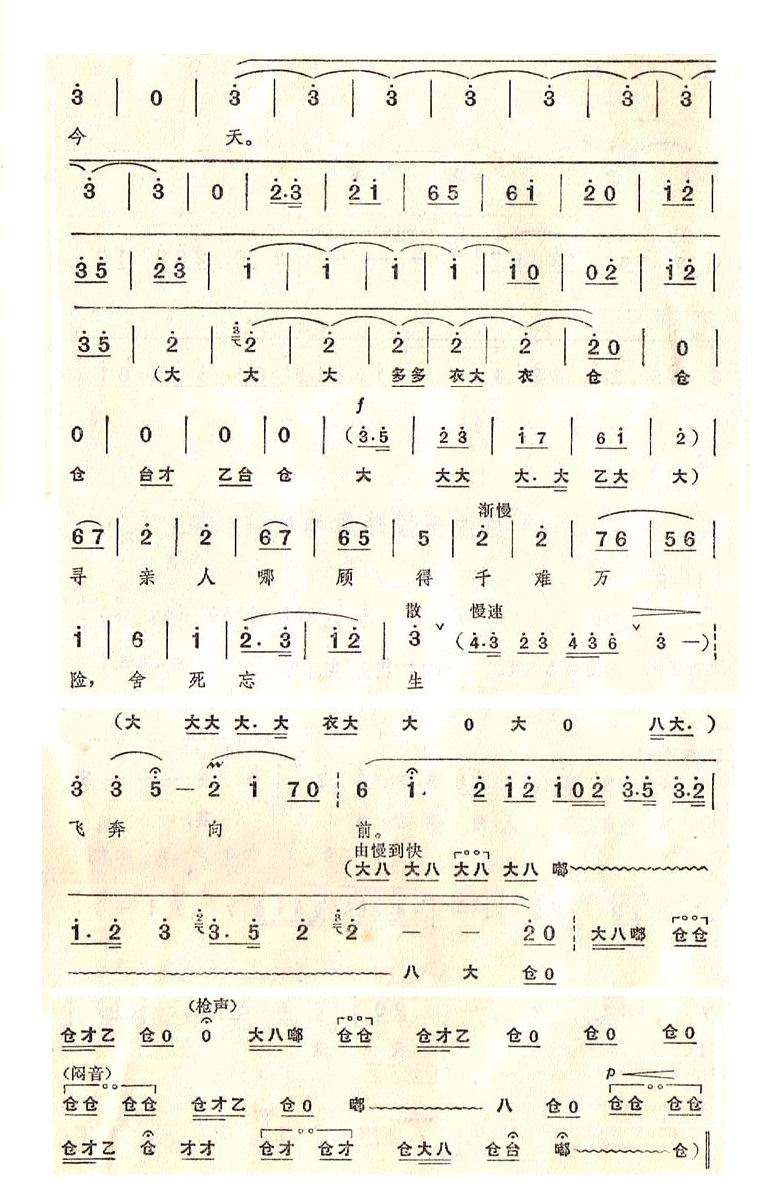 3̇ | 0 | 3̇ | 3̇ | 3̇ | 3̇ | 3̇ | 3̇ | 3̇ |
今 天。
3̇ | 3̇ | 0 | 2̇·3̇ | 2̇ 1̇ | 6 5 | 6 1̇ | 2̇ 0 | 1̇ 2̇ |
3̇ 5̇ | 2̇ 3̇ | 1̇ | 1̇ | 1̇ | 1̇ | 1̇ 0 | 0 2̇ | 1̇ 2̇ |
3̇ 5̇ | 2̇ | 3̇ 2̇ | 2̇ | 2̇ | 2̇ | 2̇ | 2̇ 0 | 0 |
(大 大 大 多多 衣大 衣 仓 仓
f
0 | 0 | 0 | 0 | (3̇·5̇ | 2̇ 3̇ | 1̇ 7 | 6 1̇ | 2̇) |
仓 台才 乙台 仓 大 大大 大. 大 乙大 大)
渐慢
6 7 | 2̇ | 2̇ | 6 7 | 6 5 | 5 | 2̇ | 2̇ | 7 6 | 5 6 |
寻 亲 人 哪 顾 得 千 难 万
散 慢速
1̇ | 6 | 1̇ | 2̇. 3̇ | 1̇ 2̇ | 3̇ ˇ (4̇·3̇ 2̇ 3̇ 4̇ 3̇ 6̇ ˇ 3̇ —)
险, 舍 死 忘 生
(大 大大 大. 大 衣大 大 0 大 0 八大.)
3̇ 3̇ 5̇ — 2̇ 1̇ 7 0 6 1̇. 2̇ 1̇ 2̇ 1̇ 0 2̇ 3̇·5̇ 3̇·2̇ |
飞 奔 向 前。
由慢到快
(大八 大八 大八 大八 嘟
1̇. 2̇ 3̇ 2̇ 3̇. 5̇ 2̇ 3̇ 2̇ — — 2̇ 0 大八嘟 仓仓
八 大 仓0
(枪声)
仓才乙 仓0 0 大八嘟 仓仓 仓才乙 仓0 仓0 仓0
(闷音) p
仓仓 仓仓 仓才乙 仓0 嘟 八 仓0 仓仓 仓仓
仓才乙 仓 才才 仓才 仓才 仓大八 仓台 嘟 仓)